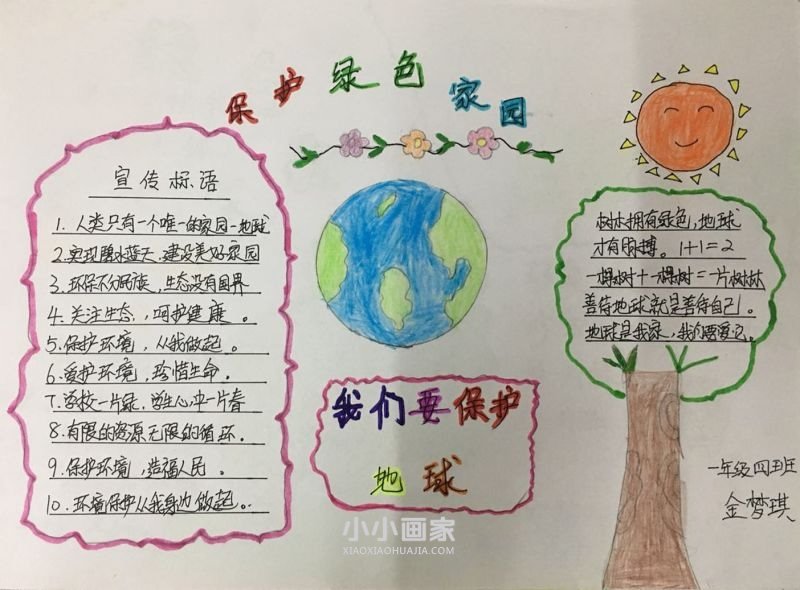 保护绿色家园
宣传标语
1. 人类只有一个唯一的家园-地球
2. 实现碧水蓝天,建设美好家园
3. 环保不分民族,生态没有国界
4. 关注生态,呵护健康。
5. 保护环境,从我做起。
6. 爱护环境,珍惜生命。
7. 学校一片绿,学生心中一片春
8. 有限的资源无限的循环。
9. 保护环境,造福人民。
10. 环境保护从我身边做起。
我们要保护
地球
树木拥有绿色,地球
才有脉搏。1+1=2
一棵树+一棵树=一片树林
善待地球就是善待自己。
地球是我家,我们要爱它。
一年级四班
金梦琪
小小画家
XIAOXIAOHUAJIA.COM